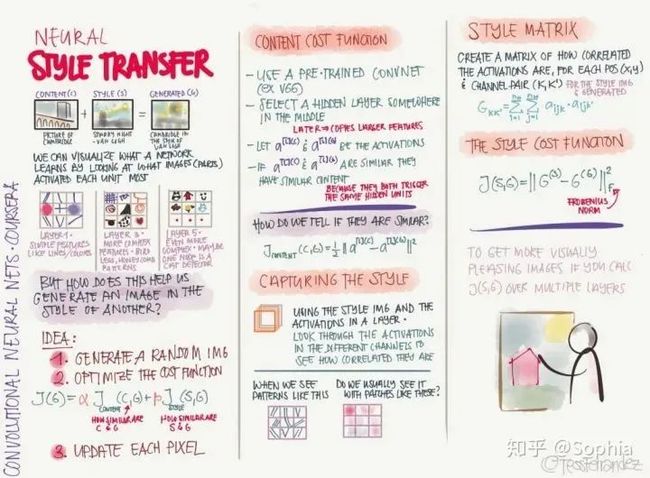 CONVOLUTIONAL NEURAL NETS · COURSERA
NEURAL
STYLE TRANSFER
CONTENT(C) STYLE (S) GENERATED (G)
+ =
PICTURE OF
CAMBRIDGE
STARRY NIGHT
- VAN GOGH
CAMBRIDGE IN
THE STYLE OF
VAN GOGH
WE CAN VISUALIZE WHAT A NETWORK
LEARNS BY LOOKING AT WHAT IMAGES (PARTS)
ACTIVATED EACH UNIT MOST
LAYER 1 -
SIMPLE FEATURES
LIKE LINES/COLORS
LAYER 3 -
MORE COMPLEX
FEATURES - BIRD
LEGS, HONEYCOMB
PATTERNS
LAYER 5 -
EVEN MORE
COMPLEX - MAYBE
ONE NODE IS A
DETECTOR
BUT HOW DOES THIS HELP US
GENERATE AN IMAGE IN THE
STYLE OF ANOTHER?
IDEA:
1. GENERATE A RANDOM IMG
2. OPTIMIZE THE COST FUNCTION
J(G) = α J CONTENT (C,G) + β J STYLE (S,G)
HOW SIMILAR ARE
C & G
HOW SIMILAR ARE
S & G
3. UPDATE EACH PIXEL
CONTENT COST FUNCTION
- USE A PRE-TRAINED CONVNET
(EX VGG)
- SELECT A HIDDEN LAYER SOMEWHERE
IN THE MIDDLE
LATER → COPIES LARGER FEATURES
- LET a[l](C) & a[l](G) BE THE ACTIVATIONS
- IF a[l](C) & a[l](G) ARE SIMILAR THEY
HAVE SIMILAR CONTENT
BECAUSE THEY BOTH TRIGGER
THE SAME HIDDEN UNITS
HOW DO WE TELL IF THEY ARE SIMILAR?
J CONTENT (C,G) = 1/2 || a[l](C) - a[l](G) ||²
CAPTURING THE STYLE
USING THE STYLE IMG AND THE
ACTIVATIONS IN A LAYER ·
LOOK THROUGH THE ACTIVATIONS
IN THE DIFFERENT CHANNELS TO
SEE HOW CORRELATED THEY ARE
WHEN WE SEE
PATTERNS LIKE THIS
DO WE USUALLY SEE IT
WITH PATCHES LIKE THESE?
STYLE MATRIX
CREATE A MATRIX OF HOW CORRELATED
THE ACTIVATIONS ARE, FOR EACH POS (x,y)
& CHANNEL PAIR (K,K') FOR THE STYLE IMG
& GENERATED
Gkk' = Σ Σ aijk · aijk'
THE STYLE COST FUNCTION
J(S,G) = || G(S) - G(G) ||²F
FROBENIUS
NORM
TO GET MORE VISUALLY
PLEASING IMAGES IF YOU CALC
J(S,G) OVER MULTIPLE LAYERS
知乎 @Sophia
©TessFerrandez